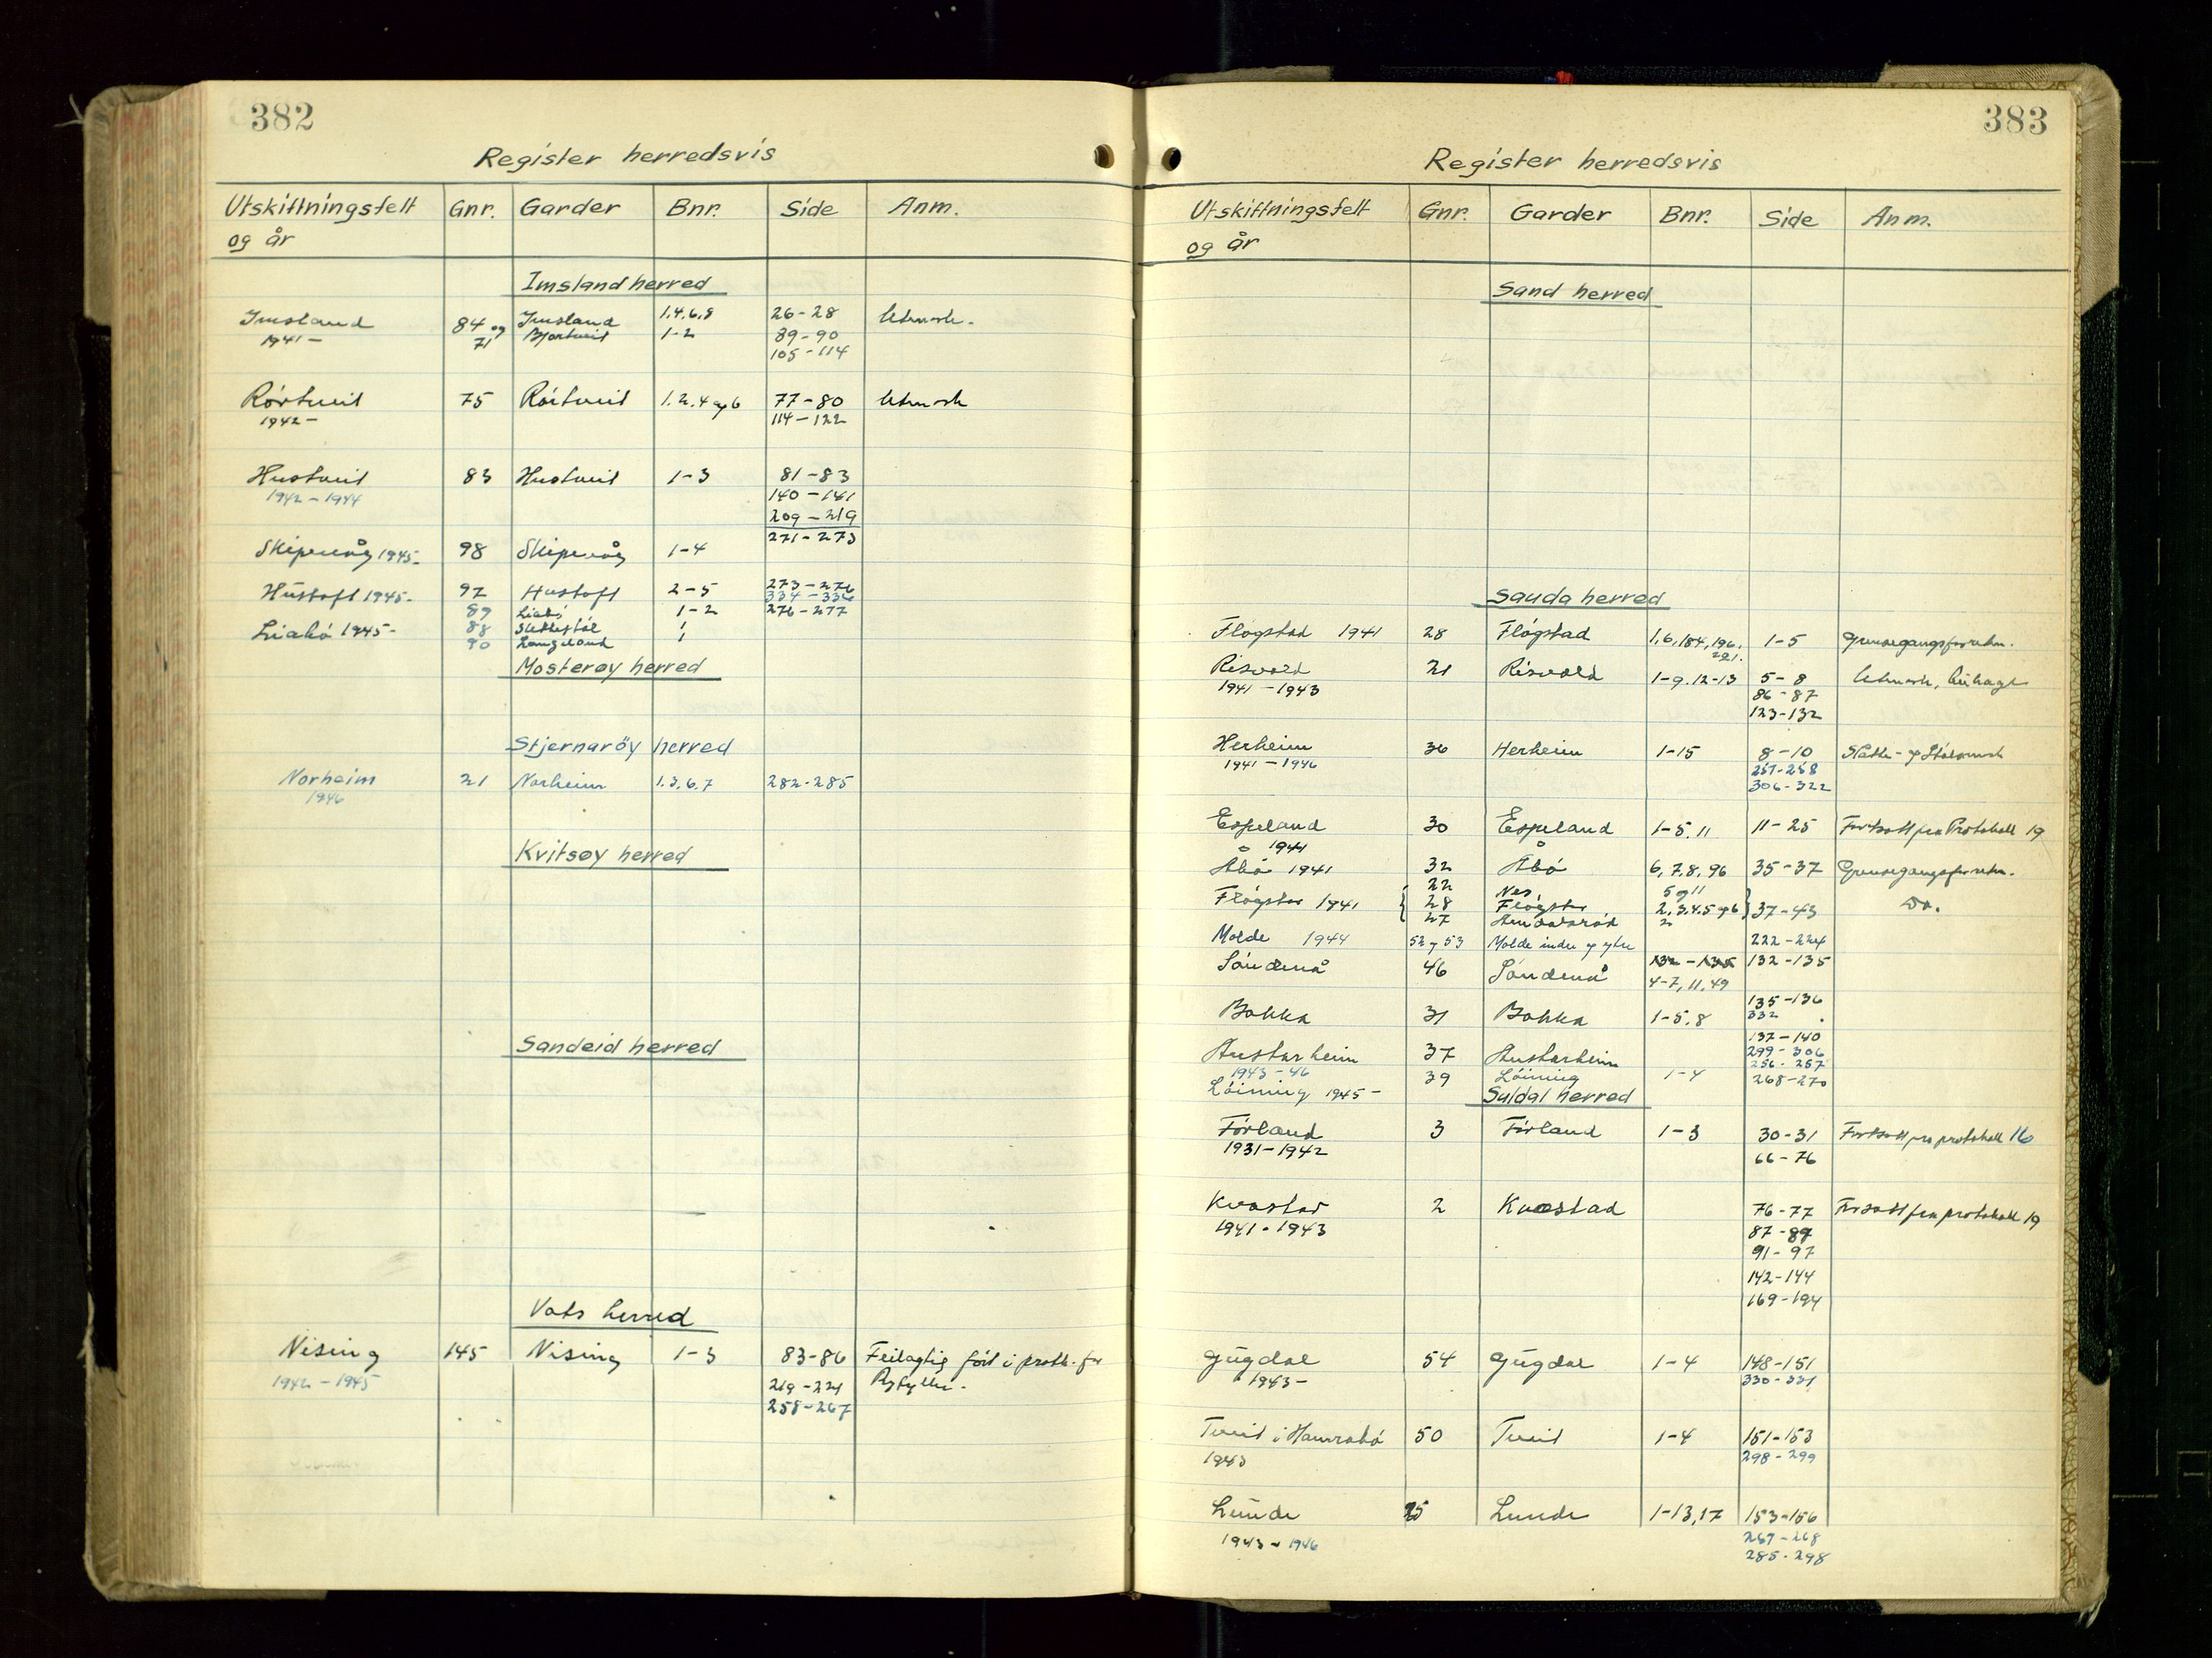 382
Register herredsvis
Utskiftningsfelt Gnr. Garder Bnr. Side Anm.
og år
Imsland herred
Imsland 84 og Imsland 1,4,6,8 26-28 Utmark.
1941- 71 1-2 89-90
105-114
Rørtveit 75 Rørtveit 1.2.4 og 6 77-80 Utmark
1942- 114-122
Hustveit 83 Hustveit 1-3 81-83
1942-1944 140-141
209-219
271-273
Skipevåg 1945- 98 Skipevåg 1-4
Hustoft 1945- 97 Hustoft 2-5 273-276
334-336
89 Liabø 1-2 276-277
Liabø 1945- 88 1
90 Langeland 1
Mosterøy herred
Stjernaröy herred
Norheim 21 Norheim 1.3.6.7 282-285
1946
Kvitsøy herred
Sandeid herred
Vats herred
Nising 145 Nising 1-3 83-86 Feilagtig ført i protk. for
1942-1945 219-221 Ryfylke.
258-267
383
Register herredsvis
Utskiftningsfelt Gnr. Garder Bnr. Side Anm.
og år
Sand herred
Sauda herred
Fløgstad 1941 28 Fløgstad 1,6,184,196, 1-5 Grensegangsforretn.
221.
Risvold 21 Risvold 1-9.12-13 5-8 Utmark,
1941-1943 86-87
123-132
Herheim 36 Herheim 1-15 8-10
1941-1946 257-258
306-322
Espeland 30 Espeland 1-5,11 11-25 Fortsatt fra Protokoll 19
1941
Åbø 1941 32 Åbø 6,7,8,96 35-37 Grensegangsforretn.
22 Nes 5 og 11
Fløgstad 1941 28 Fløgstad 2,3,4,5 og 6 37-43 Do.
27 2
Molde 1944 52 og 53 Molde indre og ytre 222-224
Søndenå 46 Søndenå 132-135 132-135
4-7,11,49
Bakka 31 Bakka 1-5,8 135-136
332
137-140
Austarheim 37 Austarheim 299-306
1943-46 256-257
Løining 1945- 39 Løining 1-4 268-270
Suldal herred
Førland 3 Førland 1-3 30-31 Fortsatt fra protokoll 16
1931-1942 66-76
Kvastad 2 Kvastad 76-77 Forsatt fra protokoll 19
1941-1943 87-89
91-97
142-144
169-194
Gugdal 54 Gugdal 1-4 148-151
1943- 330-331
Tveit i Hamrabø 50 Tveit 1-4 151-153
1943 298-299
Lunde 25 Lunde 1-13,17 153-156
1943-1946 267-268
285-298